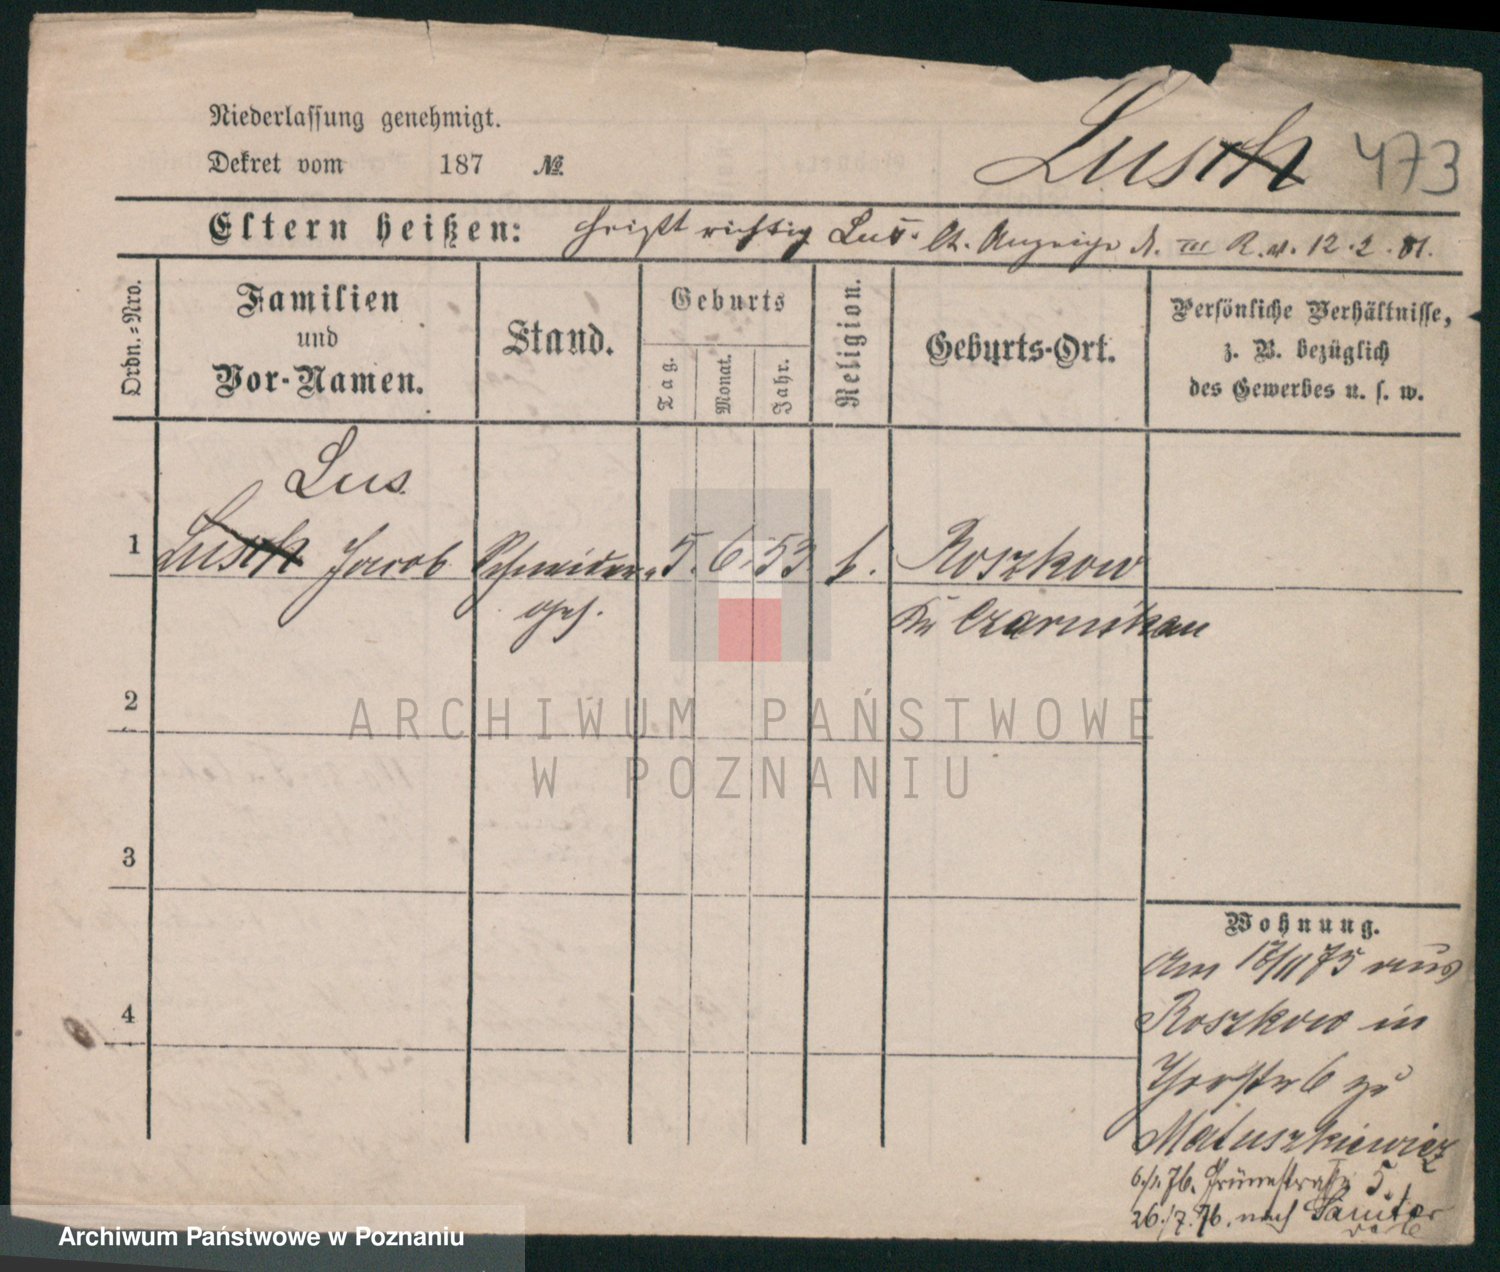 Niederlassung genehmigt.
Dekret vom 187 №.
Lusch 473
Eltern heißen: heißt richtig Lus. lt. Anzeige d. III R. v. 12.2.81.
Ordn.-Nro.
Familien
und
Vor-Namen.
Stand.
Geburts
Tag.
Monat.
Jahr.
Religion.
Geburts-Ort.
Persönliche Verhältnisse,
z. B. bezüglich
des Gewerbes u. s. w.
Lus
1 Lusch Jacob Schneider- 5. 6. 53 k. Roszkow
ges. Kr Czarnikau
2
3
4
Wohnung.
Am 17/11 75 aus
Roszkow in
6 zu
Matuszkiewicz
76. Grünestraße 5
26./7.76. nach
ARCHIWUM PAŃSTWOWE
W POZNANIU
Archiwum Państwowe w Poznaniu